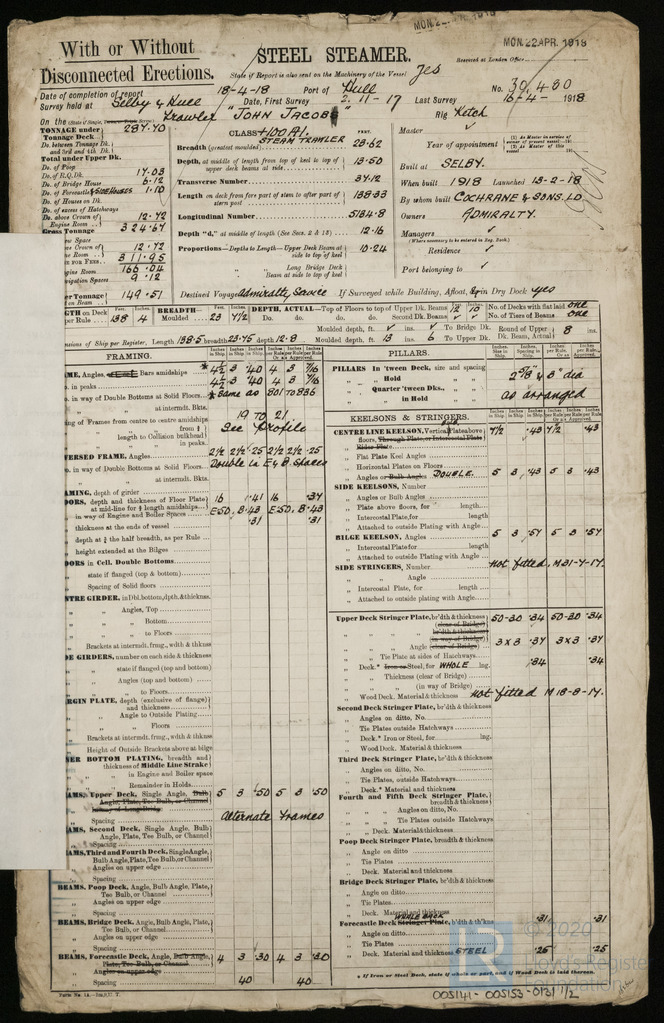 With or Without
Disconnected Erections.
STEEL STEAMER.
MON. 22 APR. 1918
Received at London Office
State if Report is also sent on the Machinery of the Vessel yes
Date of completion of report 18-4-18 Port of Hull No. 30,480
Survey held at Selby & Hull Date, First Survey 2-11-17 Last Survey 16-4- 1918
On the Trawler "JOHN JACOBS" Rig Ketch
TONNAGE under Tonnage Deck 287.40
Do. between Tonnage Dk. and 3rd and 4th Dk.
Total under Upper Dk.
Do. of Poop
Do. of R.Q. Dk. 17.03
Do. of Bridge House 6.12
Do. of Forecastle & SIDE HOUSES 1.10
Do. of Houses on Dk.
Do. of excess of Hatchways
Do. above Crown of Engine Room 12.72
Gross Tonnage 324.67
12.72
311.95
166.04
9.12
149.51
CLASS +100A1. STEAM TRAWLER
FEET.
Breadth (greatest moulded) 23.62
Depth, at middle of length from top of keel to top of upper deck beams at side 13.50
Transverse Number 37.12
Length on deck from fore part of stem to after part of stern post 138.33
Longitudinal Number 5134.8
Depth "d," at middle of length (See Secs. 2 & 13) 12.16
Proportions—Depths to Length—Upper Deck Beam at side to top of keel 10.24
" Long Bridge Deck Beam at side to top of keel
Master ✓
Year of appointment
Built at SELBY.
When built 1918 Launched 13-2-18
By whom built COCHRANE & SONS. LD
Owners ADMIRALTY.
Managers ✓
(Where necessary to be entered in Reg. Book.)
Residence ✓
Port belonging to ✓
Destined Voyage Admiralty Service If Surveyed while Building, Afloat, or in Dry Dock yes
LENGTH on Deck as per Rule 138 4 BREADTH— Moulded 23 7½ DEPTH, ACTUAL—Top of Floors to top of Upper Dk. Beams 12 10 No. of Decks with flat laid one
Do. do. do. Second Dk. Beams ✓ ✓ No. of Tiers of Beams one
Dimensions of Ship per Register, Length 138.5 breadth 23.75 depth 12.8 Moulded depth, ft. ✓ ins. ✓ To Bridge Dk. Round of Upper Dk. Beam, Actual 8 ins.
Moulded depth, ft. 13 ins. 6 To Upper Dk.
FRAMING.
FRAME, Angles, Bars amidships 4½ 3 .40 4 3 7/16
Do. in peaks 4½ 3 .40 4 3 7/16
Do. in way of Double Bottoms at Solid Floors * Same as 801 to 836
" " at intermdt. Bkts.
Spacing of Frames from centre to centre amidships 19 to 21
" " length to Collision bulkhead See Profile
" " in peaks
REVERSED FRAME, Angles 2½ 2½ .25 2½ 2½ .25
Do. in way of Double Bottoms at Solid Floors Double in E & B Spaces
" " at intermdt. Bkts.
FRAMING, depth of girder
FLOORS, depth and thickness of Floor Plate at mid-line for ½ length amidships 16 .41 16 .37
in way of Engine and Boiler Spaces E.50, B.43 E.50, B.43
thickness at the ends of vessel .31 .31
depth at ¾ the half breadth, as per Rule
height extended at the Bilges
FLOORS in Cell. Double Bottoms
state if flanged (top & bottom)
Spacing of Solid floors
CENTRE GIRDER, in Dbl. bottom, dpth. & thickness.
" Angles, Top
" " Bottom
" " to Floors
Brackets at intermdt. frmg., wdth & thknss
SIDE GIRDERS, number on each side & thickness
state if flanged (top and bottom)
Angles (top and bottom)
" to Floors
MARGIN PLATE, depth (exclusive of flange) and thickness
Angle to Outside Plating
" Floors
Brackets at intermdt. frmg., wdth & thknss
Height of Outside Brackets above at bilge
INNER BOTTOM PLATING, breadth and thickness of Middle Line Strake
" in Engine and Boiler space
Remainder in Holds
BEAMS, Upper Deck, Single Angle, Bulb Angle, Plate, Tee Bulb, or Channel 5 3 .50 5 3 .50
Spacing Alternate Frames
BEAMS, Second Deck, Single Angle, Bulb Angle, Plate, Tee Bulb, or Channel
Spacing
BEAMS, Third and Fourth Deck, Single Angle, Bulb Angle, Plate, Tee Bulb, or Channel
Angles on upper edge
Spacing
BEAMS, Poop Deck, Angle, Bulb Angle, Plate, Tee Bulb or Channel
Angles on upper edge
Spacing
BEAMS, Bridge Deck, Angle, Bulb Angle, Plate, Tee Bulb, or Channel
Angles on upper edge
Spacing
BEAMS, Forecastle Deck, Angle, Bulb Angle, Plate, Tee Bulb, or Channel 4 3 .30 4 3 .30
Angles on upper edge
Spacing 40 40
PILLARS.
PILLARS In 'tween Deck, size and spacing
" Hold 2⅝ & 3" dia
" Quarter 'tween Dks., as arranged
" in Hold
KEELSONS & STRINGERS.
CENTRE LINE KEELSON, Vertical Plate above floors, Through Plate, or Intercostal Plate 7½ .43 7½ .43
" Rider Plate
" Flat Plate Keel Angles
" Horizontal Plates on Floors
" Angles or Bulb Angles DOUBLE. 5 3 .43 5 3 .43
SIDE KEELSONS, Number
" Angles or Bulb Angles
" Plate above floors, for length
" Intercostal Plate, for length
" Attached to outside Plating with Angle
BILGE KEELSON, Angles 5 3 .57 5 3 .57
" Intercostal Plate for length
" Attached to outside Plating with Angle
SIDE STRINGERS, Number Not fitted, M 31-7-17.
" Angle
" Intercostal Plate, for length
" Attached to outside plating with Angle
Upper Deck Stringer Plate, br'dth & thickness 50-30 .34 50-30 .34
(clear of Bridge)
" br'dth & thickness (in way of Bridge)
" Angle (clear of Bridge) 3 x 3 .37 3 x 3 .37
" Tie Plate at sides of Hatchways
" Deck.* Iron or Steel, for WHOLE lng. .34 .34
" Thickness (clear of Bridge)
" (in way of Bridge)
" Wood Deck. Material & thickness Not fitted M 18-8-17.
Second Deck Stringer Plate, br'dth & thickness
" Angles on ditto, No.
" Tie Plates outside Hatchways
" Deck.* Iron or Steel, for lng.
" Wood Deck. Material & thickness
Third Deck Stringer Plate, br'dth & thickness
" Angles on ditto, No.
" Tie Plates, outside Hatchways
" Deck.* Material and thickness
Fourth and Fifth Deck Stringer Plate, breadth & thickness
" Angles on ditto, No.
" Tie Plates outside Hatchways
" Deck. Material & thickness
Poop Deck Stringer Plate, breadth & thickness
" Angle on ditto
" Tie Plates
" Deck. Material and thickness
Bridge Deck Stringer Plate, br'dth & thickness
" Angle on ditto
" Tie Plates
" Deck. Material and thickness
WHALE BACK
Forecastle Deck Stringer Plate, b'dth & th'kns .31 .31
" Angle on ditto
" Tie Plates
" Deck. Material and thickness STEEL .25 .25
* If Iron or Steel Deck, state if whole or part, and if Wood Deck is laid thereon.
© 2020
Lloyd's Register
Foundation
005141-005153-0131 1/2